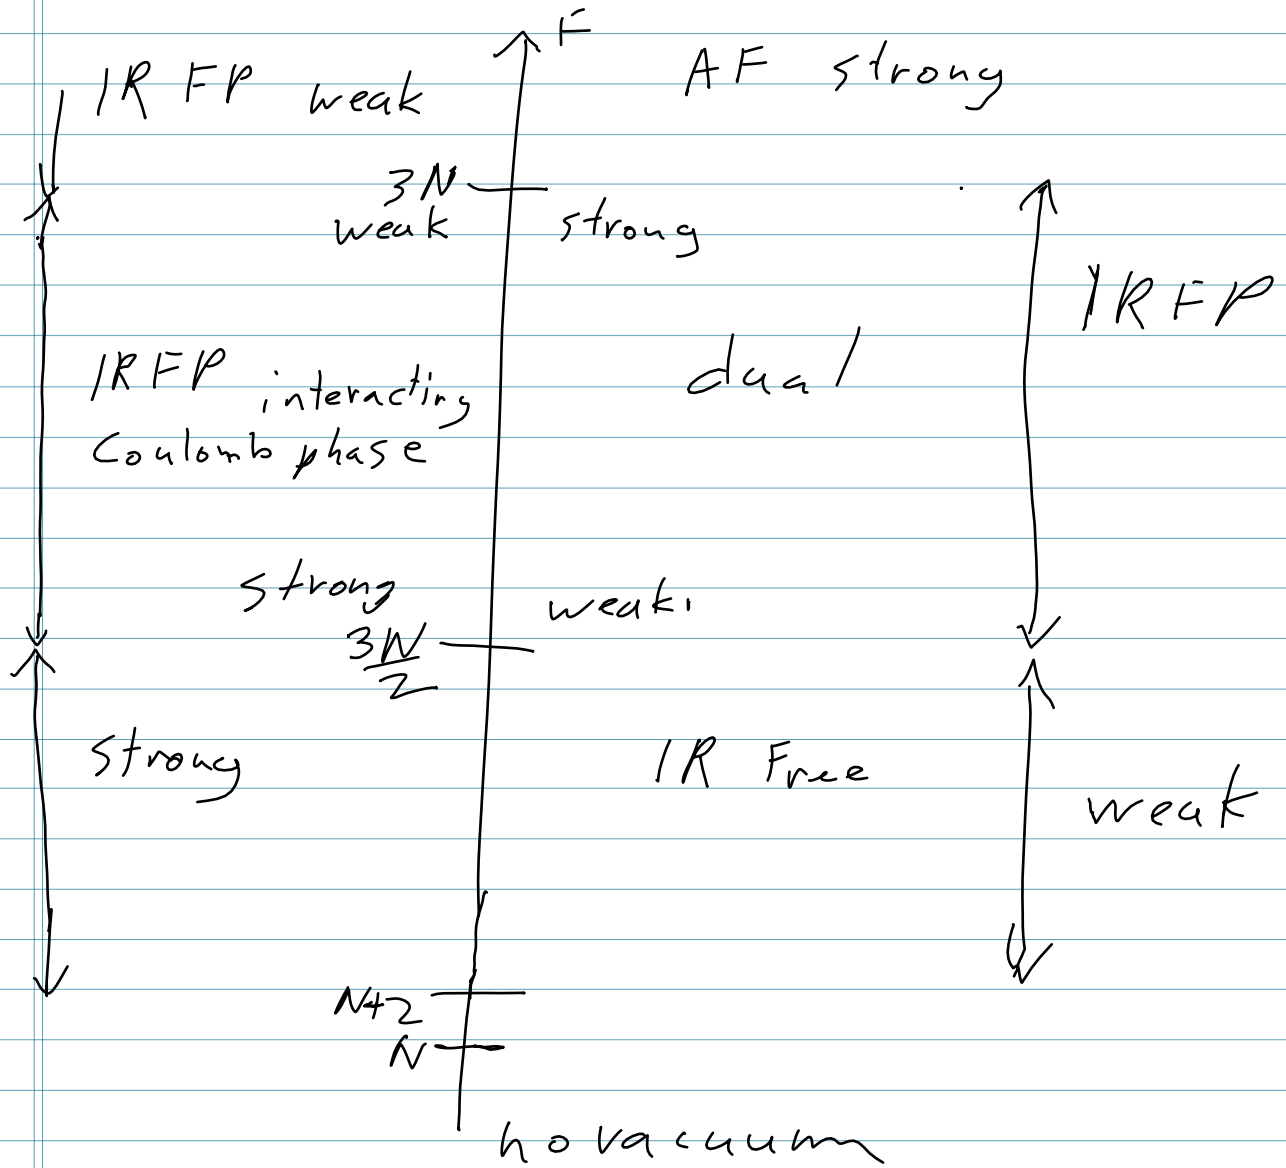 F
IR FP weak
AF strong
3N
weak
strong
IRFP
IRFP interacting
Coulomb phase
dual
strong
weak
3N
2
strong
IR Free
weak
N+2
N
no vacuum